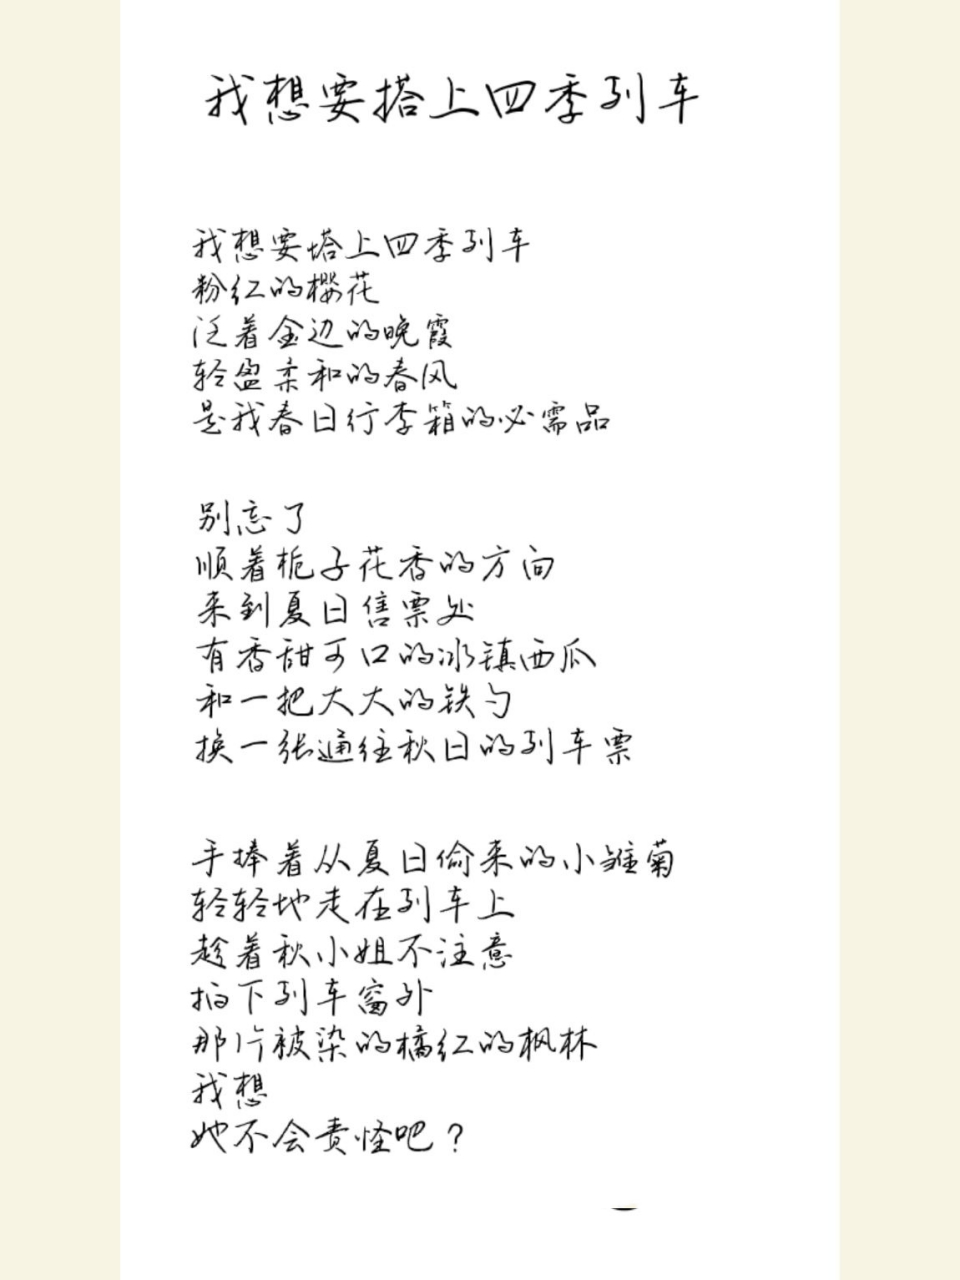 我想要搭上四季列车
我想要搭上四季列车
粉红的樱花
泛着金边的晚霞
轻盈柔和的春风
是我春日行李箱的必需品
别忘了
顺着栀子花香的方向
来到夏日售票处
有香甜可口的冰镇西瓜
和一把大大的铁勺
换一张通往秋日的列车票
手捧着从夏日偷来的小雏菊
轻轻地走在列车上
趁着秋小姐不注意
拍下列车窗外
那片被染的橘红的枫林
我想
她不会责怪吧？